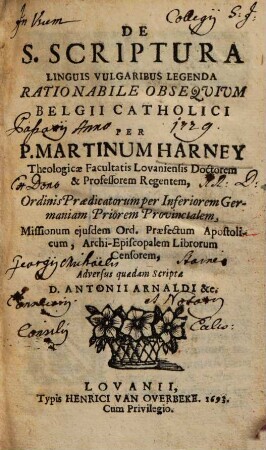 In Usum Collegij S. J.
DE
S. SCRIPTURA
LINGUIS VULGARIBUS LEGENDA
RATIONABILE OBSEQUIUM
BELGII CATHOLICI
Passavij Anno 1729.
PER
P. MARTINUM HARNEY
Theologicæ Facultatis Lovaniensis Doctorem
& Professorem Regentem,
Ex Dono D:
Ordinis Prædicatorum per Inferiorem Ger-
maniam Priorem Provincialem,
Missionum ejusdem Ord. Præfectum Apostoli-
cum, Archi-Episcopalem Librorum
Censorem,
Georgij Michaelis
Adversus quædam Scripta
D. ANTONII ARNALDI &c.
Consilij
LOVANII,
Typis HENRICI VAN OVERBEKE. 1693.
Cum Privilegio.